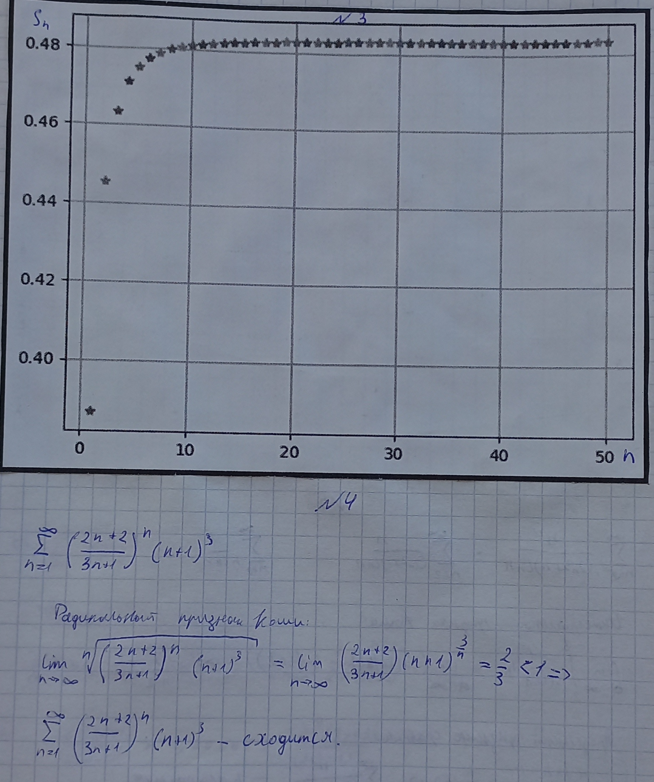 N3
Sₙ
0.48
0.46
0.44
0.42
0.40
0 10 20 30 40 50 n
N4
∑_{n=1}^{∞} ((2n+2)/(3n+1))^n (n+1)^3
Радикальный признак Коши:
lim_{n→∞} ⁿ√(((2n+2)/(3n+1))^n (n+1)^3) = lim_{n→∞} ((2n+2)/(3n+1)) (n+1)^{3/n} = 2/3 < 1 =>
∑_{n=1}^{∞} ((2n+2)/(3n+1))^n (n+1)^3 – сходится.